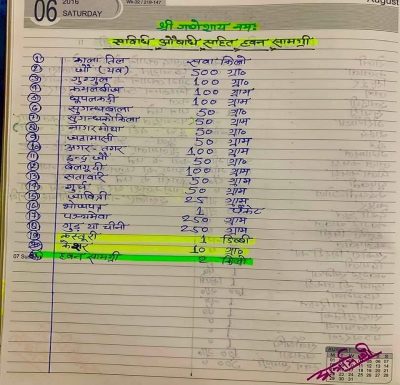 06 2016
SATURDAY
Wk-32 / 219-147
August
श्री गणेशाय नमः
सर्वविधि औषधि सहित हवन सामग्री
① काला तिल सवा किलो
② जौ (यव) 500 ग्रा०
③ गुग्गुल 100 ग्रा०
④ कमलबीज 100 ग्राम
⑤ धूपलकड़ी 100 ग्राम
⑥ सुगन्धबाला 50 ग्रा०
⑦ सुगन्धकोकिला 50 ग्राम
⑧ नागरमोथा 50 ग्राम
⑨ जटामासी 50 ग्राम
⑩ अगर-तगर 100 ग्राम
⑪ इन्द्र जौ 50 ग्रा०
⑫ बेलगुदी 100 ग्राम
⑬ सतावरि 50 ग्राम
⑭ गुर्च 50 ग्राम
⑮ जावित्री 25 ग्राम
⑯ भोजपत्र 1 पैकेट
⑰ पञ्चमेवा 250 ग्राम
⑱ गुड़ या चीनी 250 ग्राम
⑲ कस्तूरी 1 डिब्बी
⑳ केसर 10 ग्रा०
07 Sun हवन सामग्री 2 किलो